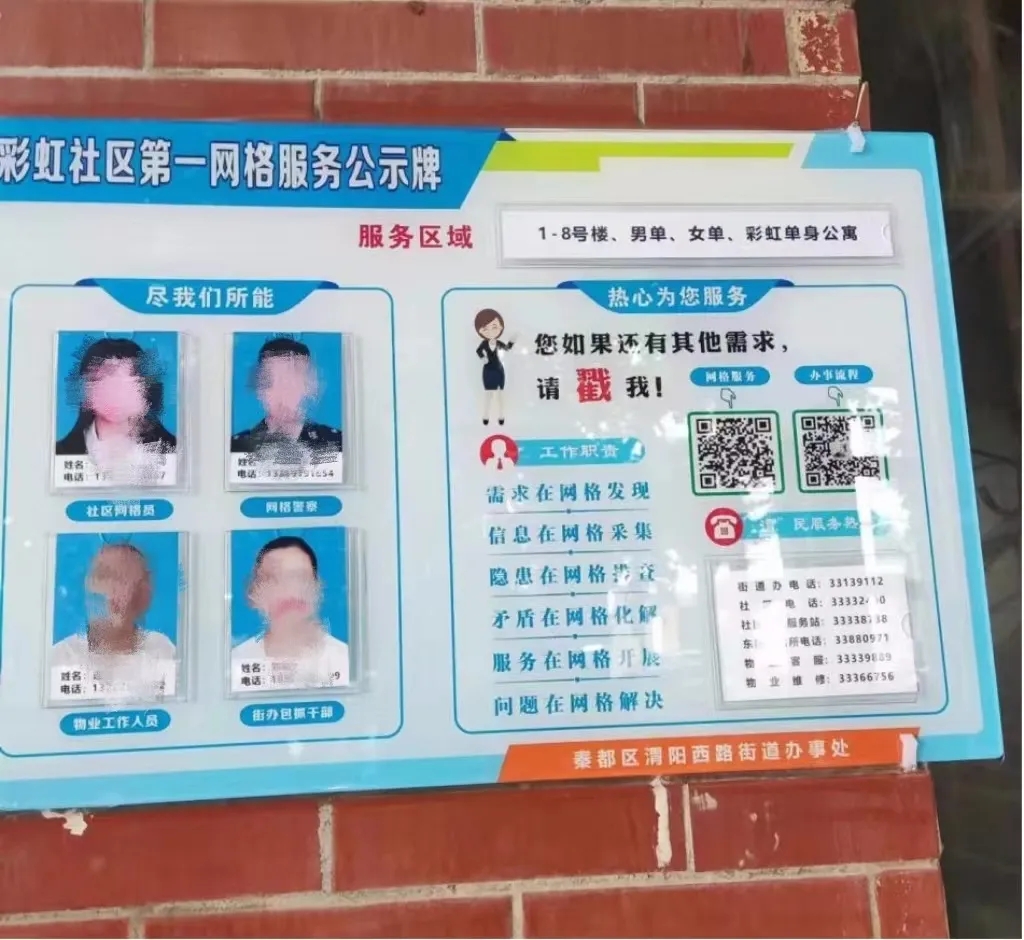 彩虹社区第一网格服务公示牌
服务区域
1-8号楼、男单、女单、彩虹单身公寓
尽我们所能
姓名:
电话:
社区网格员
姓名:
电话:
网格警察
姓名:
电话:
物业工作人员
姓名:
电话:
街办包抓干部
热心为您服务
您如果还有其他需求，
请 戳 我!
网格服务
办事流程
工作职责
需求在网格发现
信息在网格采集
隐患在网格排查
矛盾在网格化解
服务在网格开展
问题在网格解决
民服务热
街道办电话: 33139112
社 电话:
社 服务站: 33338738
所电话: 33880971
物 客服: 33339889
物业维修: 33366756
秦都区渭阳西路街道办事处